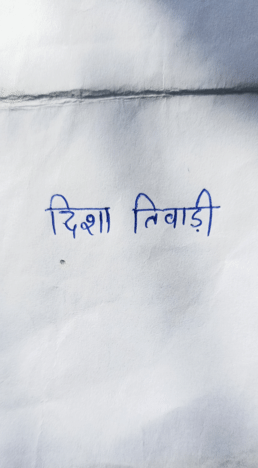 दिशा तिवाड़ी